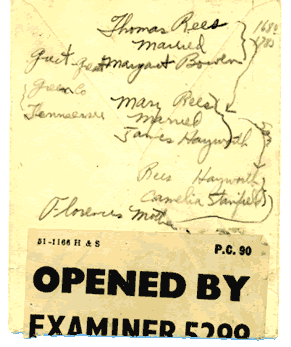 Thomas Rees
Married
Great Great Margaret Bowen
Green Co
Tennessee
Mary Rees
Married
James Hayworth
Rees Hayworth
Camelia Stanfield
Florences Mother
51-1166 H & S
P.C. 90
OPENED BY
EXAMINER 5299